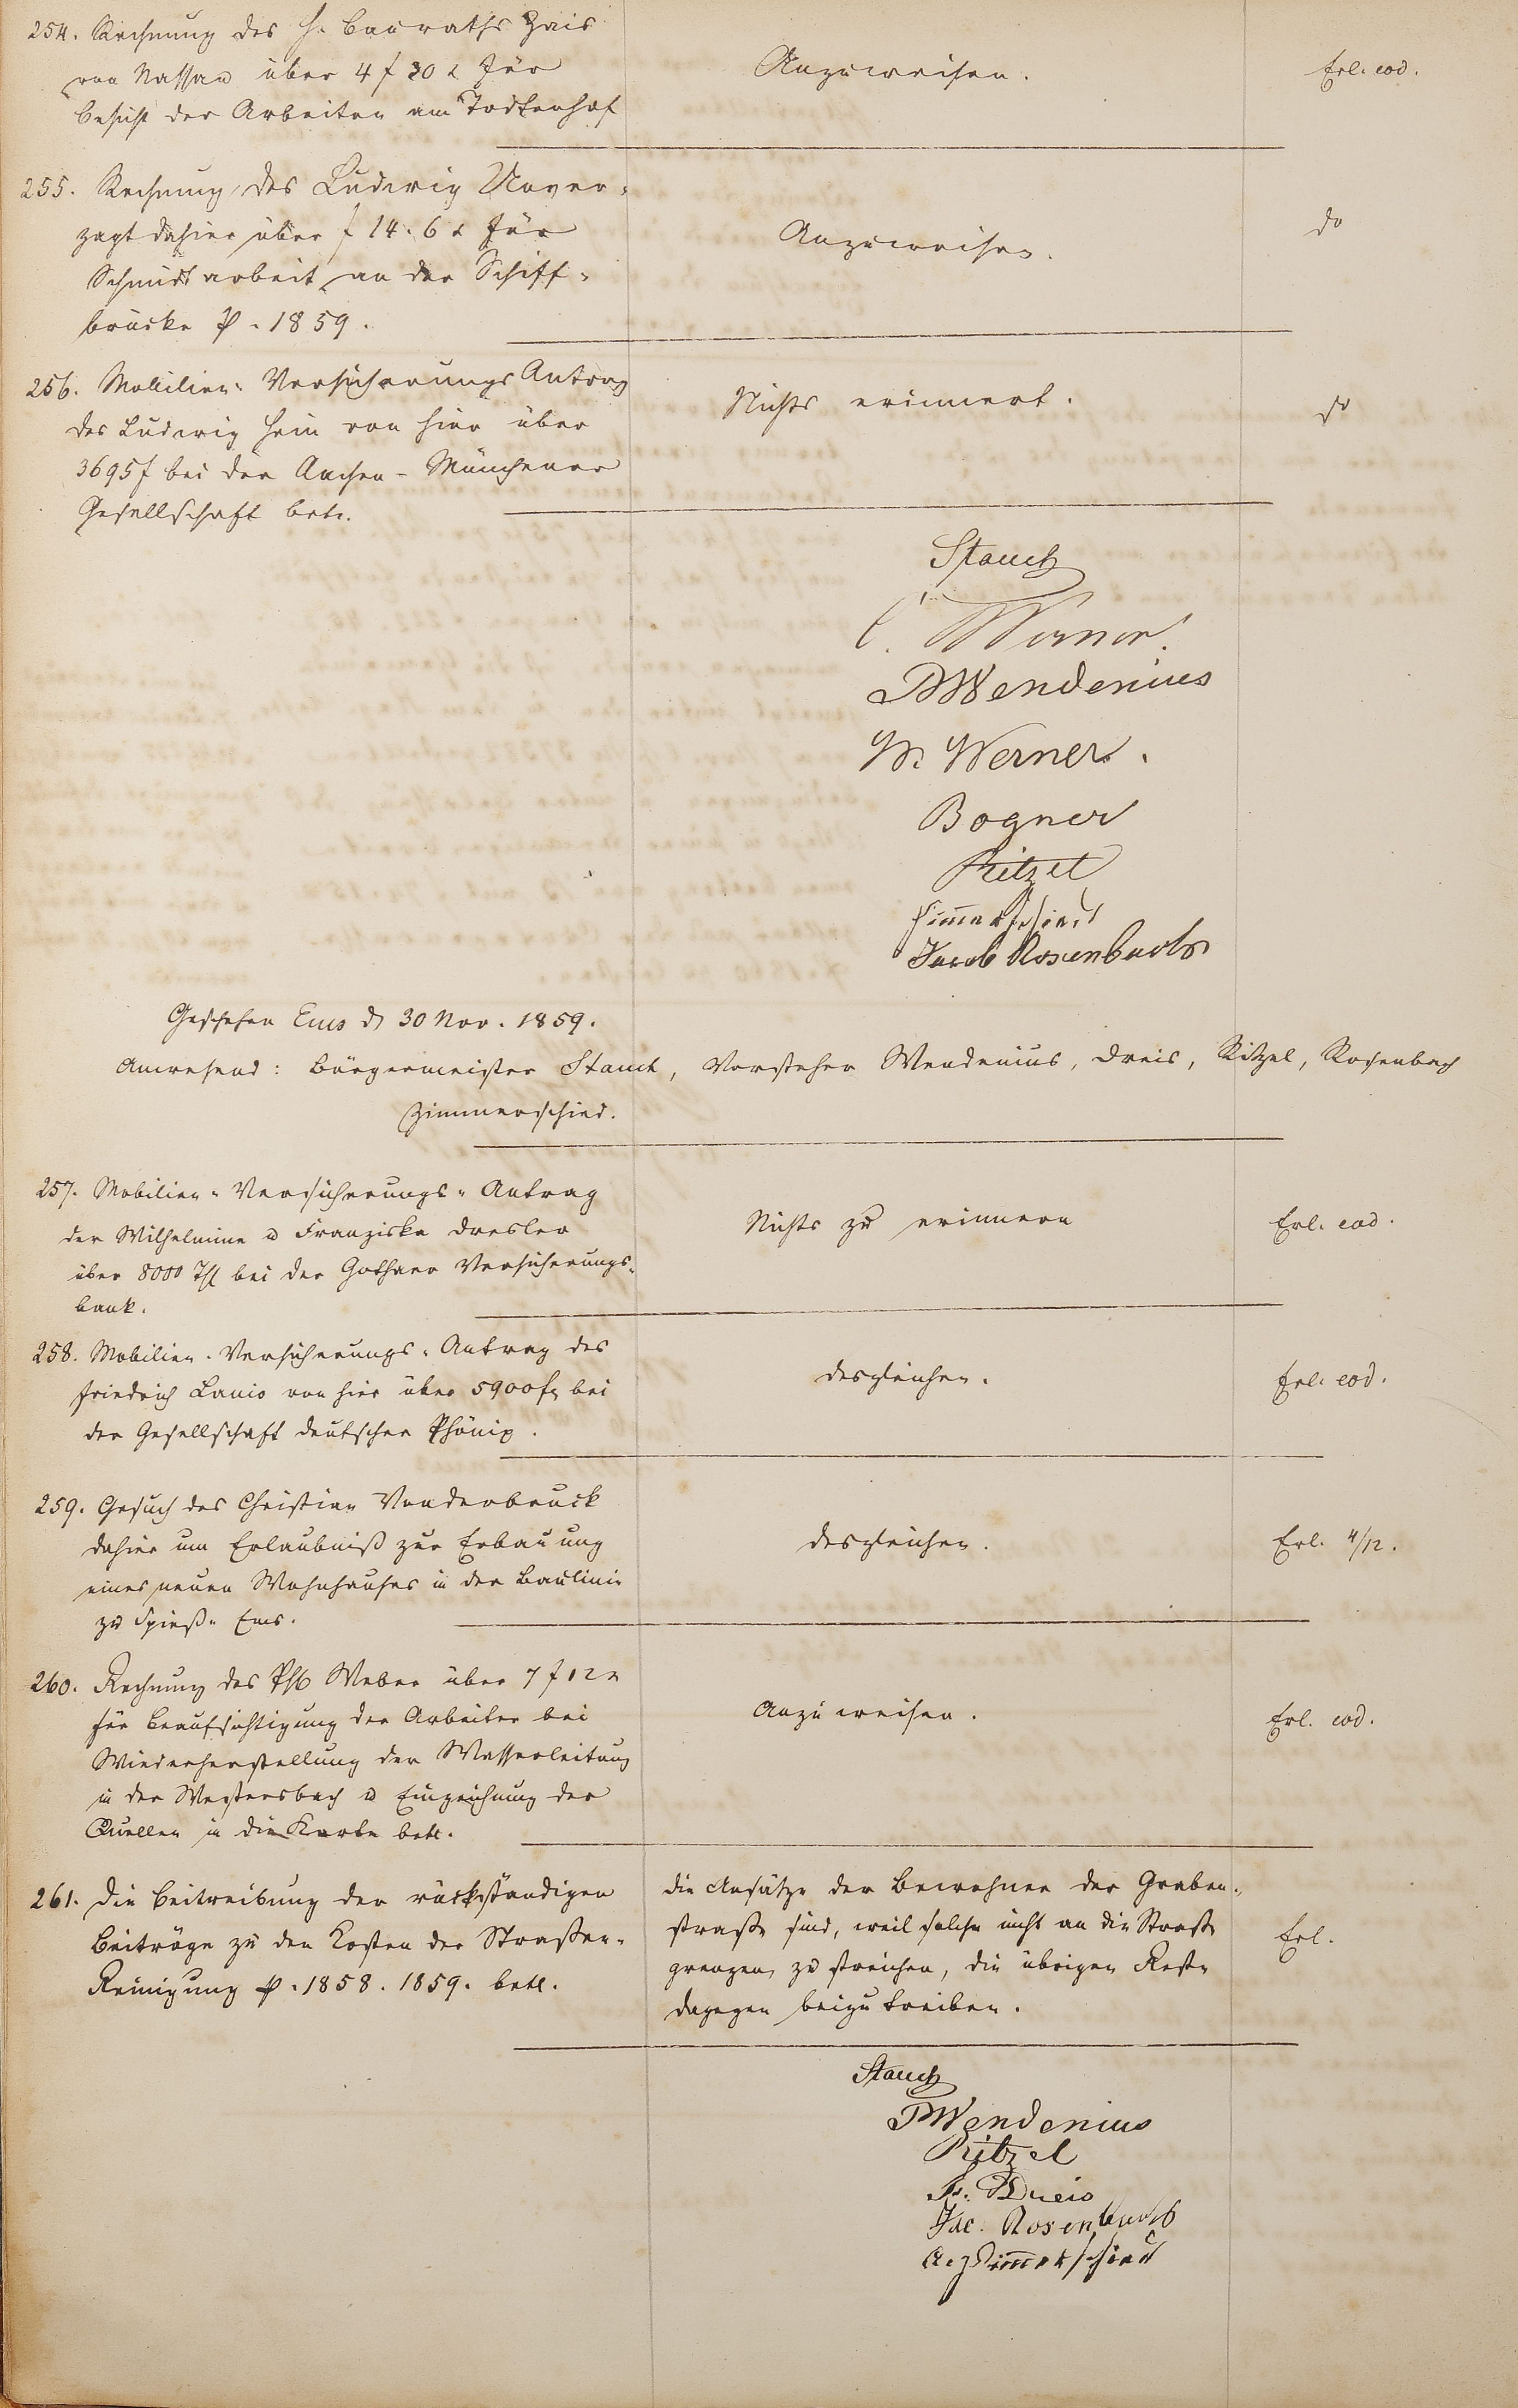 254. Rechnung des H. Bauraths Zais
von Nassau über 4 f 30 x für
Besicht der Arbeiten am Todtenhof
Anzuweisen.
Erl. eod.
255. Rechnung des Ludwig Unver-
zagt dahier über f 14. 6 x für
Schmidtarbeit an der Schiff-
brücke p. 1859.
Anzuweisen.
do
256. Mobilien-Versicherungs Antrag
des Ludwig Hein von hier über
3695 f bei der Aachen-Münchener
Gesellschaft betr.
Nichts erinnert.
do
Stauch
C. Werner.
PWWendenius
W. Werner.
Bogner
Ritzel
Zimmerschied
Jacob Rosenbach
Geschehen Ems d 30 Nov. 1859.
Anwesend: Bürgermeister Stauch, Vorsteher Wendenius, Dreis, Ritzel, Rosenbach
Zimmerschied.
257. Mobilien-Versicherungs-Antrag
der Wilhelmine u Franziska Dresler
über 8000 Thl bei der Gothaer Versicherungs-
bank.
Nichts zu erinnern
Erl. eod.
258. Mobilien-Versicherungs-Antrag des
Friedrich Lanio von hier über 5900 f bei
der Gesellschaft deutscher Phönix.
desgleichen.
Erl. eod.
259. Gesuch des Christian Vonderbruck
dahier um Erlaubniß zur Erbauung
eines neuen Wohnhauses in der Baulinie
zu Spieß-Ems.
desgleichen.
Erl. 4/12.
260. Rechnung des Phil Weber über 7 f 12 x
für Beaufsichtigung der Arbeiter bei
Wiederherstellung der Wasserleitung
in der Westersbach u Einzeichnung der
Quellen in die Karte betr.
Anzuweisen.
Erl. eod.
261. Die Beitreibung der rückständigen
Beiträge zu den Kosten der Straßen-
Reinigung p. 1858. 1859. betr.
Die Ansätze der Bewohner der Graben-
straße sind, weil solche nicht an die Straße
grenzen, zu streichen, die übrigen Reste
dagegen beizutreiben.
Erl.
Stauch
PWWendenius
Ritzel
Fr. Dreis
Jac. Rosenbach
A. Zimmerschied